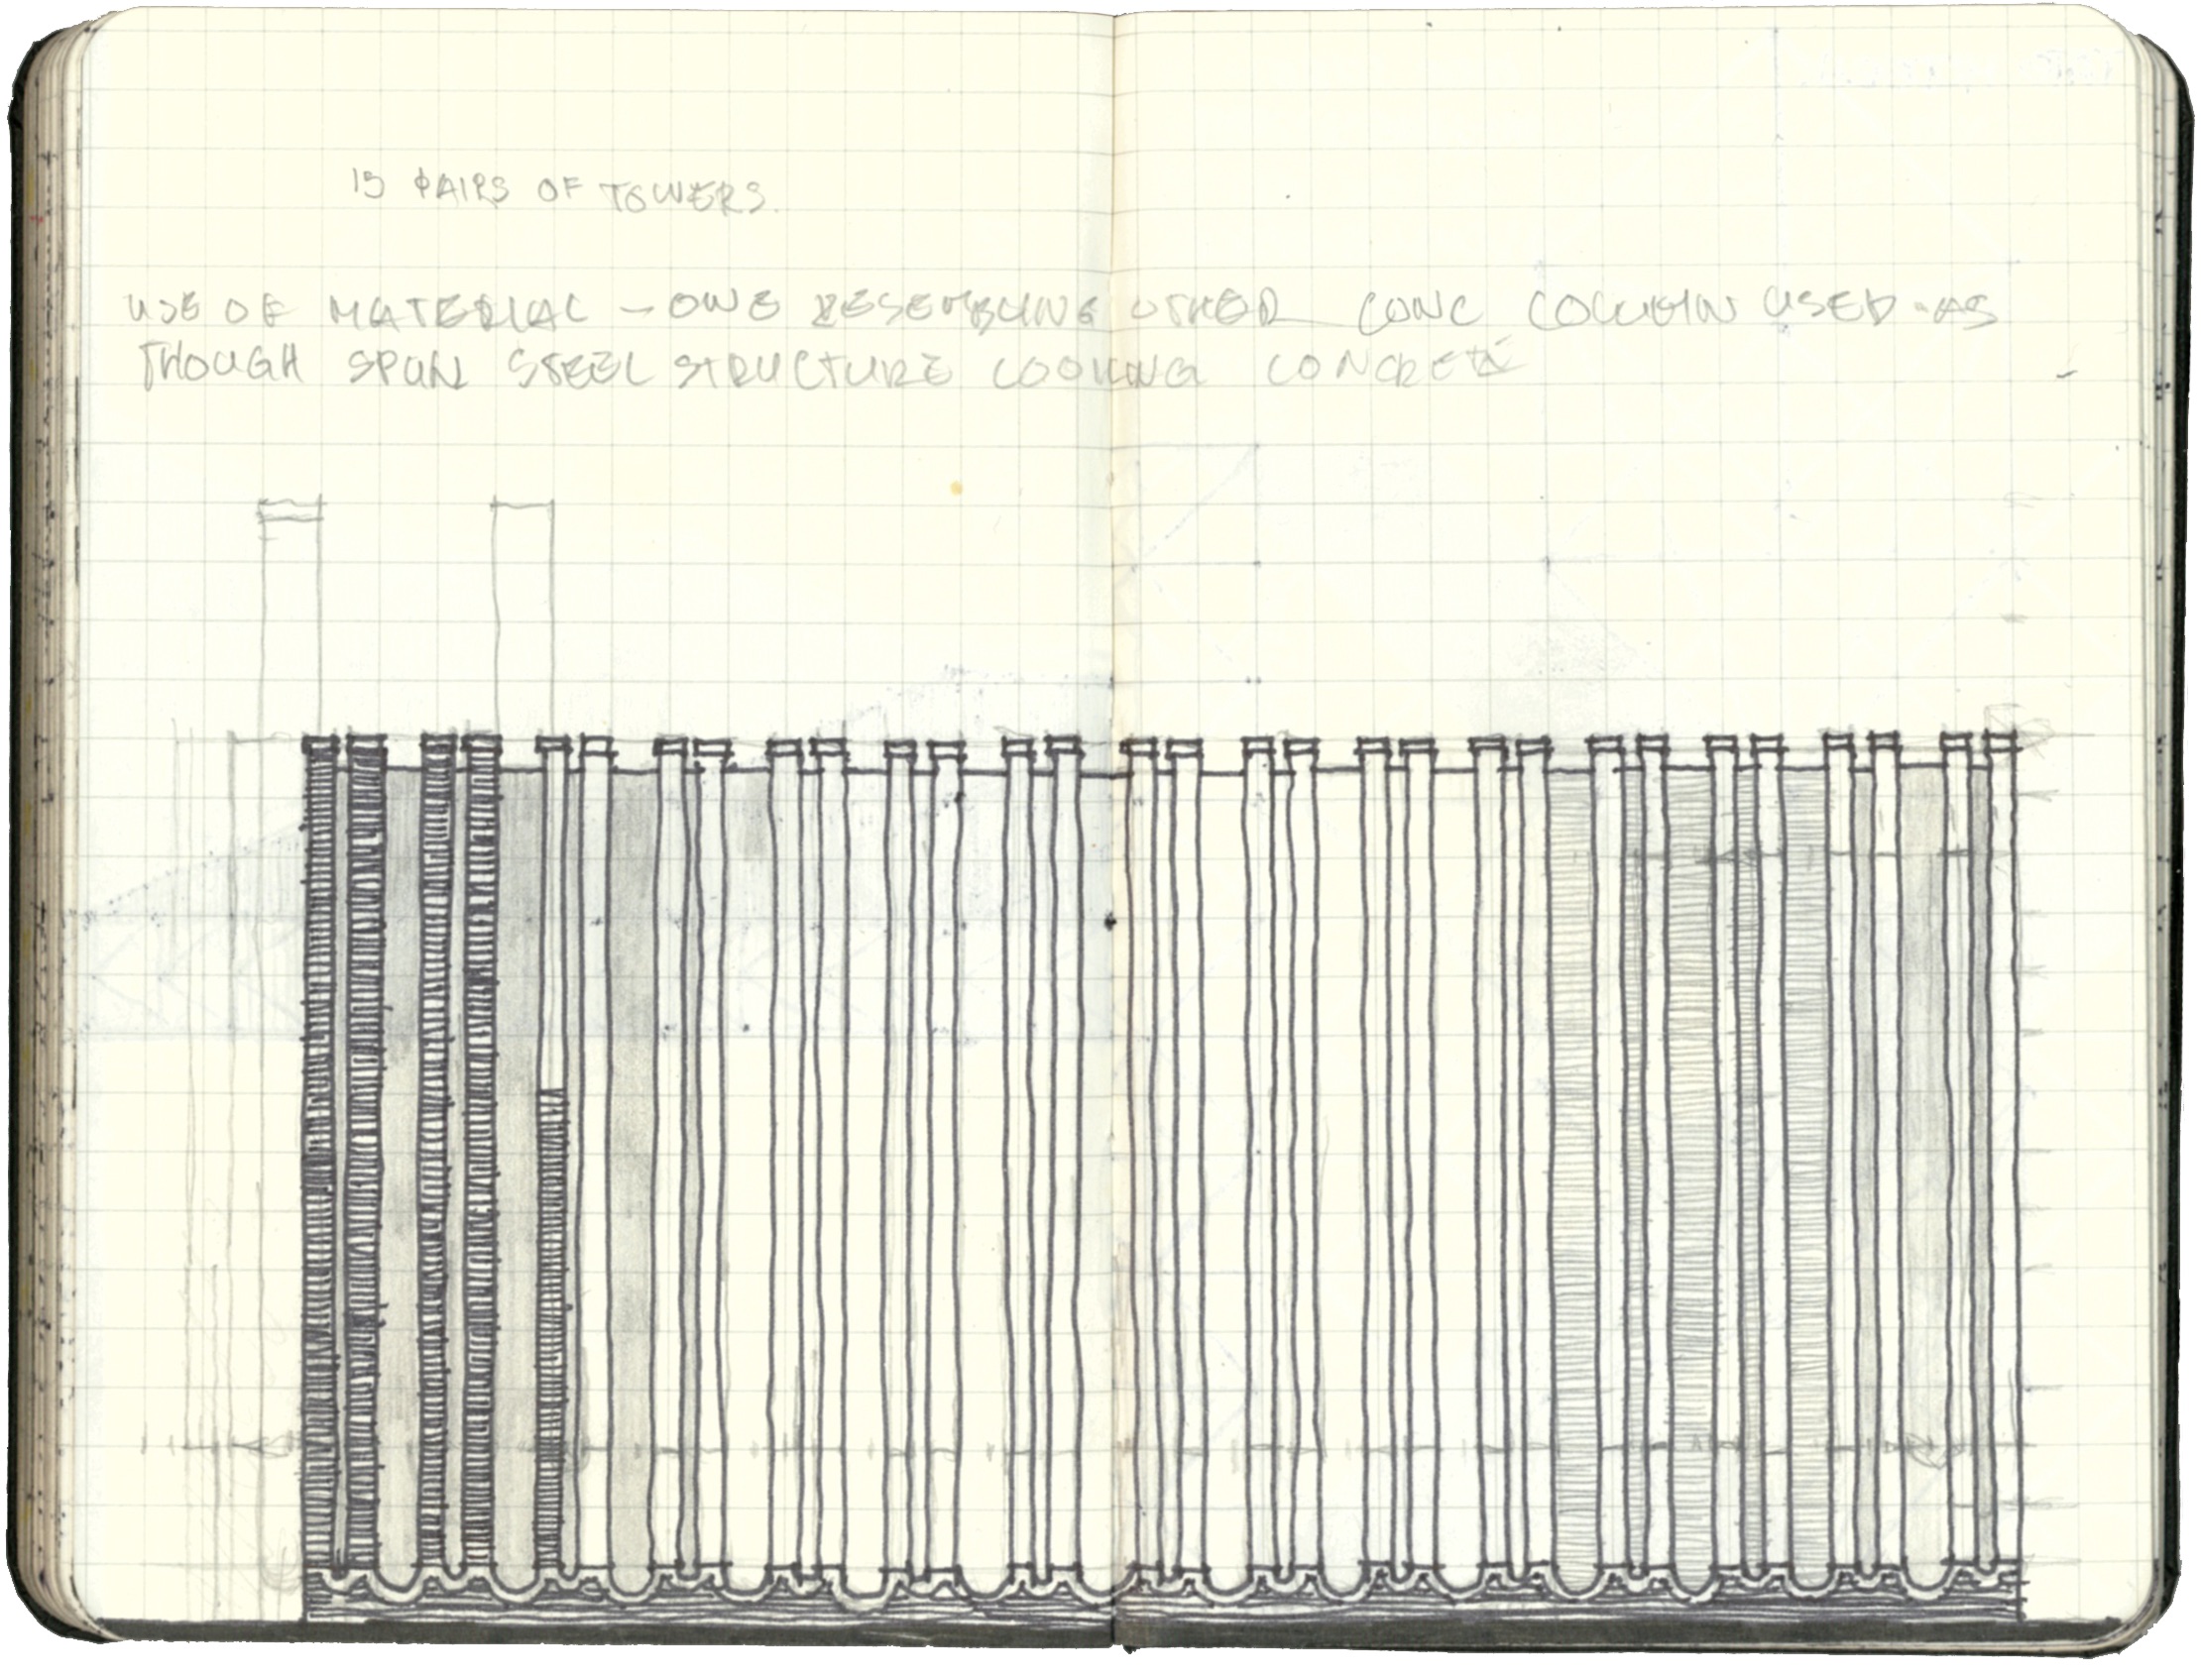 15 PAIRS OF TOWERS.
USE OF MATERIAL - ONE RESEMBLING OTHER CONC COLUMN USED AS
THOUGH SPUN STEEL STRUCTURE LOOKING CONCRETE